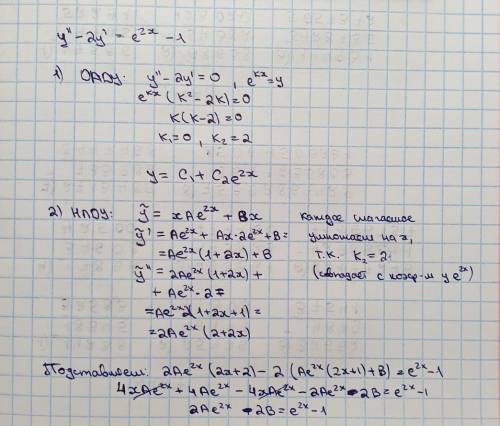 y'' - 2y' = e^{2x} - 1
1) ОЛДУ: y'' - 2y' = 0, e^{kx} = y
e^{kx} (k² - 2k) = 0
k(k-2) = 0
k₁ = 0, k₂ = 2
y = C₁ + C₂e^{2x}
2) НЛДУ: ỹ = xAe^{2x} + Bx каждое слагаемое
ỹ' = Ae^{2x} + Ax·2e^{2x} + B = умножаем на x,
= Ae^{2x}(1+2x) + B т.к. k₂ = 2
ỹ'' = 2Ae^{2x}(1+2x) + (совпадает с коэф-м у e^{2x})
+ Ae^{2x}·2 =
= Ae^{2x}2(1+2x+1) =
= 2Ae^{2x}(2+2x)
Подставляем: 2Ae^{2x}(2x+2) - 2(Ae^{2x}(2x+1)+B) = e^{2x} - 1
4xAe^{2x} + 4Ae^{2x} - 4xAe^{2x} - 2Ae^{2x} - 2B = e^{2x} - 1
2Ae^{2x} - 2B = e^{2x} - 1